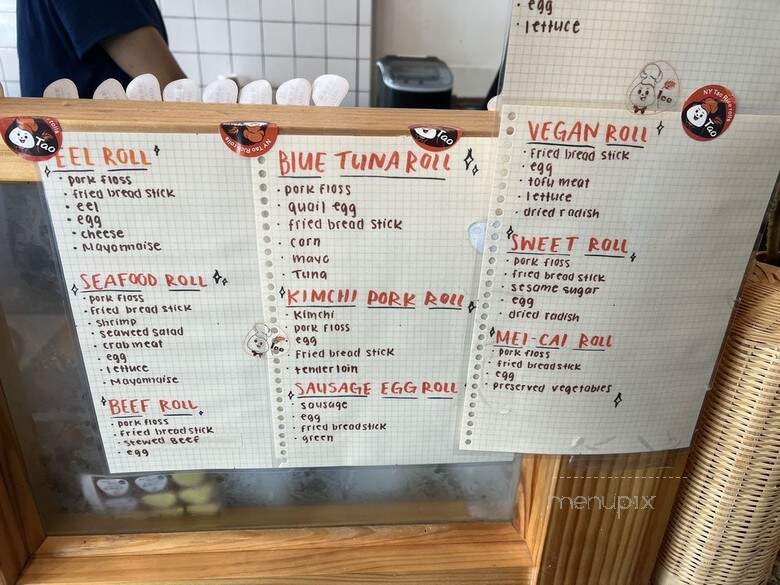 EEL ROLL
· pork floss
· fried bread stick
· eel
· egg
· cheese
· Mayonnaise
SEAFOOD ROLL
· pork floss
· fried bread stick
· shrimp
· seaweed salad
· crab meat
· egg
· lettuce
· Mayonnaise
BEEF ROLL
· pork floss
· fried bread stick
· stewed Beef
· egg
BLUE TUNA ROLL
· pork floss
· quail egg
· fried bread stick
· corn
· mayo
· Tuna
KIMCHI PORK ROLL
· Kimchi
· pork floss
· egg
· Fried bread stick
· tenderloin
SAUSAGE EGG ROLL
· sausage
· egg
· fried bread stick
· green
· egg
· lettuce
VEGAN ROLL
· fried bread stick
· egg
· tofu meat
· lettuce
· dried radish
SWEET ROLL
· pork floss
· fried bread stick
· sesame sugar
· egg
· dried radish
MEI-CAI ROLL
· pork floss
· fried bread stick
· egg
· preserved vegetables
Tao
NY Tao Rice rolls
Tao
NY Tao Rice rolls
Tao
menupix